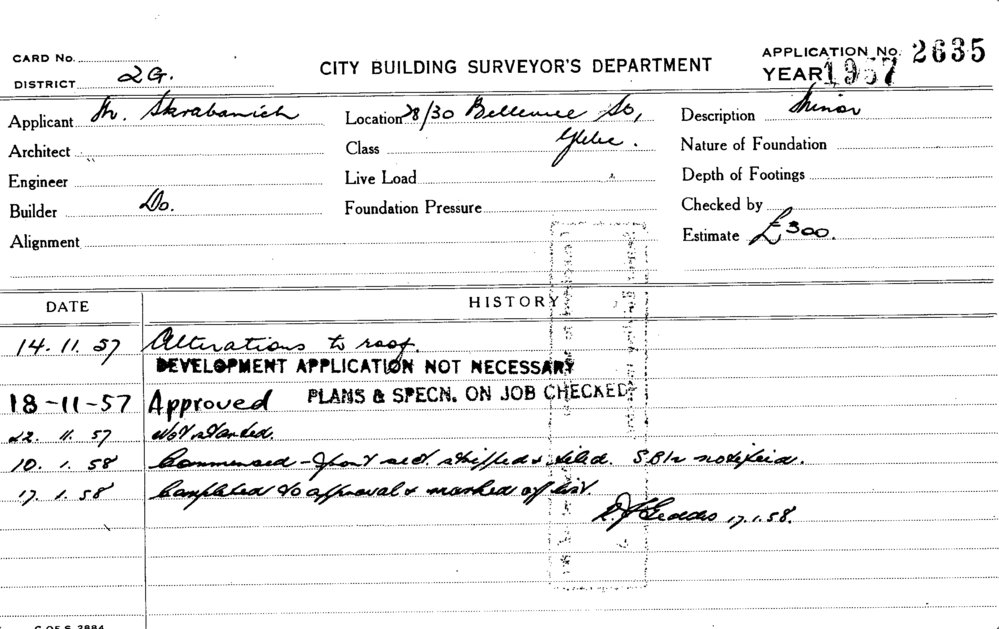 CARD No.
DISTRICT 2G.
CITY BUILDING SURVEYOR'S DEPARTMENT
APPLICATION No. 2635
YEAR 1957
Applicant M. Skrabanich
Location 28/30 Bellevue St,
Description Minor
Architect
Class Glebe.
Nature of Foundation
Engineer
Live Load
Depth of Footings
Builder Do.
Foundation Pressure
Checked by
Alignment
Estimate £300.
DATE
HISTORY
14. 11. 57 Alterations to roof.
DEVELOPMENT APPLICATION NOT NECESSARY
18-11-57 Approved PLANS & SPECN. ON JOB CHECKED
22. 11. 57 Not started.
10. 1. 58 Commenced - Front sect. stripped & tiled. notified.
17. 1. 58 Completed to approval & marked off list.
Geddes 17.1.58.
C OF S 2884